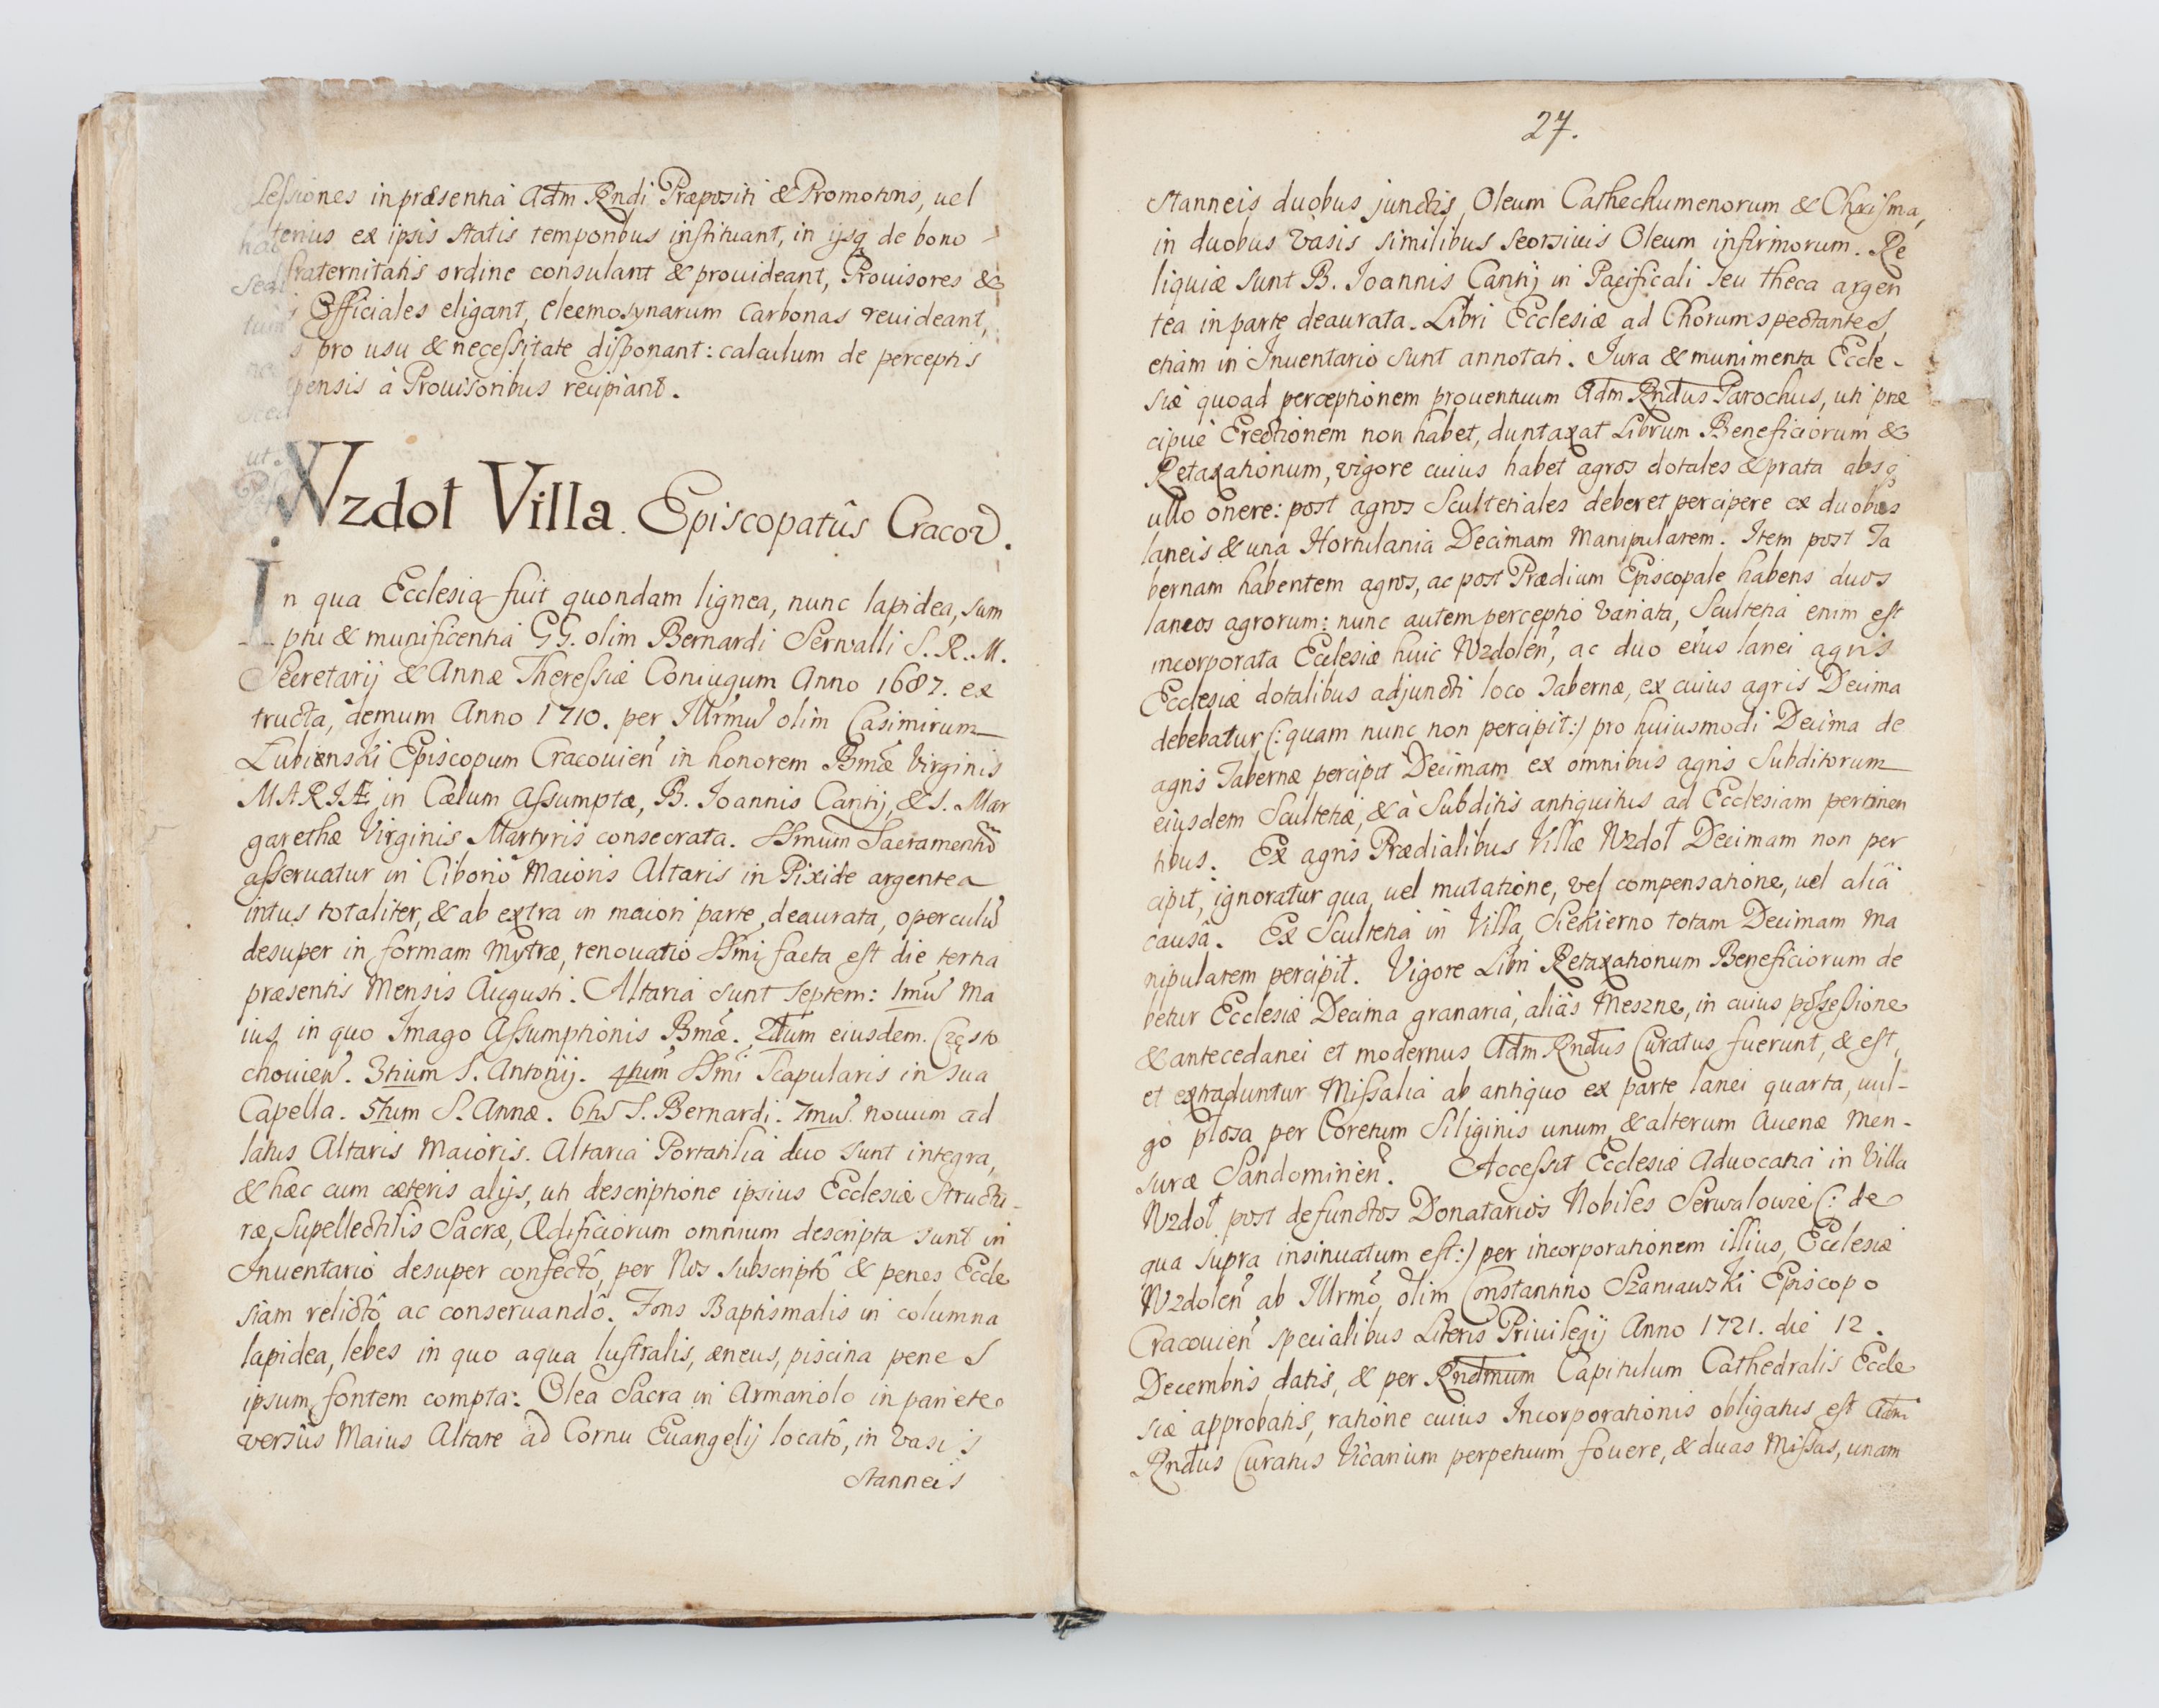 sessiones in præsentia Adm Rndi Præpositi & Promotoris, uel
terius ex ipsis statis temporibus instituant, in ijsq de bono
fraternitatis ordine consulant & prouideant, Prouisores &
Officiales eligant, eleemosynarum Carbonas reuideant,
pro usu & necessitate disponant: calculum de perceptis
pensis à Prouisoribus recipiant.
Wzdoł Villa Episcopatûs Cracov.
In qua Ecclesia fuit quondam lignea, nunc lapidea, sum
ptu & munificentiâ GG. olim Bernardi Serwalli S. R. M.
Secretarij & Annæ Theressiæ Coniugum Anno 1687. ex
tructa, demum Anno 1710. per Illrmũ olim Casimirum
Łubienski Episcopum Cracouień in honorem Bmæ Virginis
MARIÆ in Cælum Assumptæ, B. Joannis Cantij, & S. Mar
garethæ Virginis Martyris consecrata. SSmum Sacramentũ
asseruatur in Ciborio Maioris Altaris in Pixide argentea
intus totaliter, & ab extra in maiori parte deaurata, operculũ
desuper in formam Mytræ, renouatio SSmi facta est die tertia
præsentis Mensis Augusti. Altaria sunt septem: 1mũ Ma
ius in quo Imago Assumptionis Bmæ. 2dum eiusdem Często
chouień. 3tium S. Antonij. 4tum SSmi Scapularis in sua
Capella. 5tum S. Annæ. 6tũ S. Bernardi. 7mũ nouum ad
latus Altaris Maioris. Altaria Portatilia duo sunt integra,
& hæc cum cæteris alijs, uti descriptione ipsius Ecclesiæ Structu-
ræ, Supellectilis Sacræ, Ædificiorum omnium descripta sunt in
Inuentario desuper confectô, per Nos subscriptô & penes Eccle
siam relictô ac conseruandô. Fons Baptismalis in columna
lapidea, lebes in quo aqua lustralis, æneus, piscina penes
ipsum fontem compta: Olea Sacra in Armariolo in pariete
versùs Maius Altare ad Cornu Euangelij locatô, in vasis
stanneis
27.
stanneis duobus junctis, Oleum Cathechumenorum & Chrisma,
in duobus vasis similibus seorsiuis Oleum infirmorum. Re
liquiæ sunt B. Joannis Cantij in Pacificali seu theca argen
tea in parte deaurata. Libri Ecclesiæ ad Chorum spectantes
etiam in Inuentario sunt annotati. Jura & munimenta Eccle-
siæ quoad perceptionem prouentuum Adm Rndus Parochus, uti præ
cipuè Erectionem non habet, duntaxat Librum Beneficiorum &
Retaxationum, vigore cuius habet agros dotales & prata absq
ullo onere: post agros Scultetiales deberet percipere ex duobus
laneis & una Hortulania Decimam Manipularem. Item post Ta
bernam habentem agros, ac post Prædium Episcopale habens duos
laneos agrorum: nunc autem perceptio variata, Scultetia enim est
incorporata Ecclesiæ huic Wzdoleń, ac duo eius lanei agris
Ecclesiæ dotalibus adjuncti loco Tabernæ, ex cuius agris Decima
debebatur (: quam nunc non percipit :) pro huiusmodi Decima de
agris Tabernæ percipit Decimam ex omnibus agris Subditorum
eiusdem Scultetiæ, & à Subditis antiquitus ad Ecclesiam pertinen
tibus. Ex agris Prædialibus Villæ Wzdoł Decimam non per
cipit, ignoratur qua uel mutatione, vel compensatione, uel aliâ
causâ. Ex Scultetia in Villa Siekierno totam Decimam Ma
nipularem percipit. Vigore Libri Retaxationum Beneficiorum de
betur Ecclesiæ Decima granaria, aliàs Meszne, in cuius possessione
& antecedanei et modernus Adm Rndus Curatus fuerunt, & est,
et extraduntur Missalia ab antiquo ex parte lanei quarta, vul-
gò płosa per Coretum Siliginis unum & alterum Auenæ Men-
suræ Sandomirień. Accessit Ecclesiæ Aduocatia in Villa
Wzdoł post defunctos Donatarios Nobiles Serwalowie (: de
qua supra insinuatum est :) per incorporationem illius, Ecclesiæ
Wzdoleń ab Illrmo olim Constantino Szaniawski Episcopo
Cracouień specialibus Literis Priuilegij Anno 1721. die 12.
Decembris datis, & per Rndmum Capitulum Cathedralis Eccle
siæ approbatis, ratione cuius Incorporationis obligatus est Adm
Rndus Curatus Vicarium perpetuum fouere, & duas Missas, unam